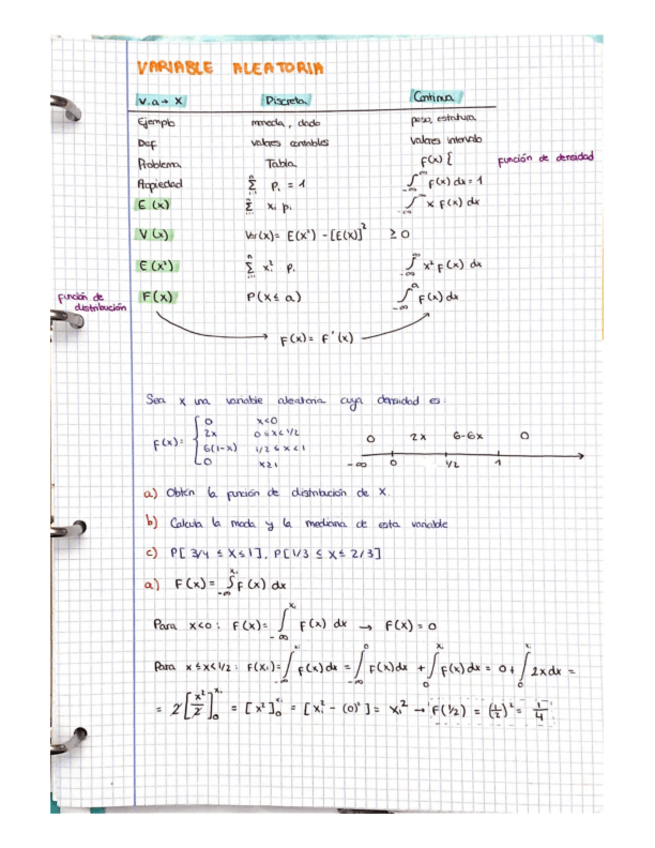 VARIABLE ALEATORIA
V.a → X Discreta Continua
Ejemplo moneda, dado peso, estatura
Def valores contables valores intervalo
Problema Tabla f(x) { función de densidad
Propiedad Σ pᵢ = 1 ∫ f(x) dx = 1
E(x) Σ xᵢ pᵢ ∫ x f(x) dx
V(x) Var(x) = E(x²) - [E(x)]² ≥ 0
E(x²) Σ xᵢ² pᵢ ∫ x² f(x) dx
función de distribución F(x) P(x ≤ a) ∫ f(x) dx
f(x) = F'(x)
Sea X una variable aleatoria cuya densidad es:
f(x) = { 0 x<0
2x 0≤x<1/2
6(1-x) 1/2≤x<1
0 x≥1
0 2x 6-6x 0
-∞ 0 1/2 1
a) Obtén la función de distribución de X.
b) Calcula la moda y la mediana de esta variable
c) P[3/4 ≤ X ≤ 1], P[1/3 ≤ X ≤ 2/3]
a) F(x) = ∫_{-∞}^{xᵢ} f(x) dx
Para x<0: F(x) = ∫_{-∞}^{xᵢ} f(x) dx → F(x) = 0
Para x≤x<1/2: F(xᵢ) = ∫_{-∞}^{xᵢ} f(x) dx = ∫_{-∞}^{0} f(x) dx + ∫_{0}^{xᵢ} f(x) dx = 0 + ∫_{0}^{xᵢ} 2x dx =
= 2[x²/2]₀^{xᵢ} = [x²]₀^{xᵢ} = [xᵢ² - (0)²] = xᵢ² → F(1/2) = (1/2)² = 1/4